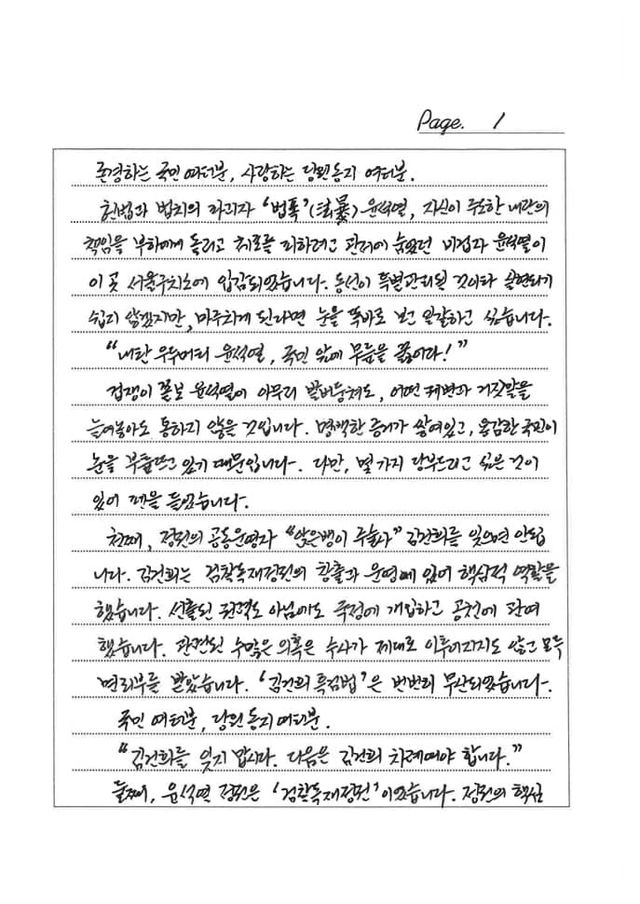 Page. 1
존경하는 국민 여러분, 사랑하는 당원동지 여러분.
헌법과 법치의 파괴자 '법폭'(法暴) 윤석열, 자신이 주도한 내란의
책임을 부하에게 돌리고 체포를 피하려고 관저에 숨었던 비겁자 윤석열이
이 곳 서울구치소에 입감되었습니다. 동선이 특별관리될 것이라 실현되기
쉽지 않겠지만, 마주치게 된다면 눈을 똑바로 보고 일갈하고 싶습니다.
"내란 우두머리 윤석열, 국민 앞에 무릎을 꿇어라!"
겁쟁이 쫄보 윤석열이 아무리 발버둥쳐도, 어떤 궤변과 거짓말을
늘어놓아도 통하지 않을 것입니다. 명백한 증거가 쌓여있고, 용감한 국민이
눈을 부릅뜨고 있기 때문입니다. 다만, 몇 가지 당부드리고 싶은 것이
있어 펜을 들었습니다.
첫째, 정권의 공동운영자 "앉은뱅이 주술사" 김건희를 잊으면 안됩
니다. 김건희는 검찰독재정권의 창출과 운영에 있어 핵심적 역할을
했습니다. 선출된 권력도 아님에도 국정에 개입하고 공천에 관여
했습니다. 관련된 수많은 의혹은 수사가 제대로 이루어지지도 않고 모두
면죄부를 받았습니다. '김건희 특검법'은 번번히 무산되었습니다.
국민 여러분, 당원동지 여러분.
"김건희를 잊지 맙시다. 다음은 김건희 차례여야 합니다."
둘째, 윤석열 정권은 '검찰독재정권'이었습니다. 정권의 핵심